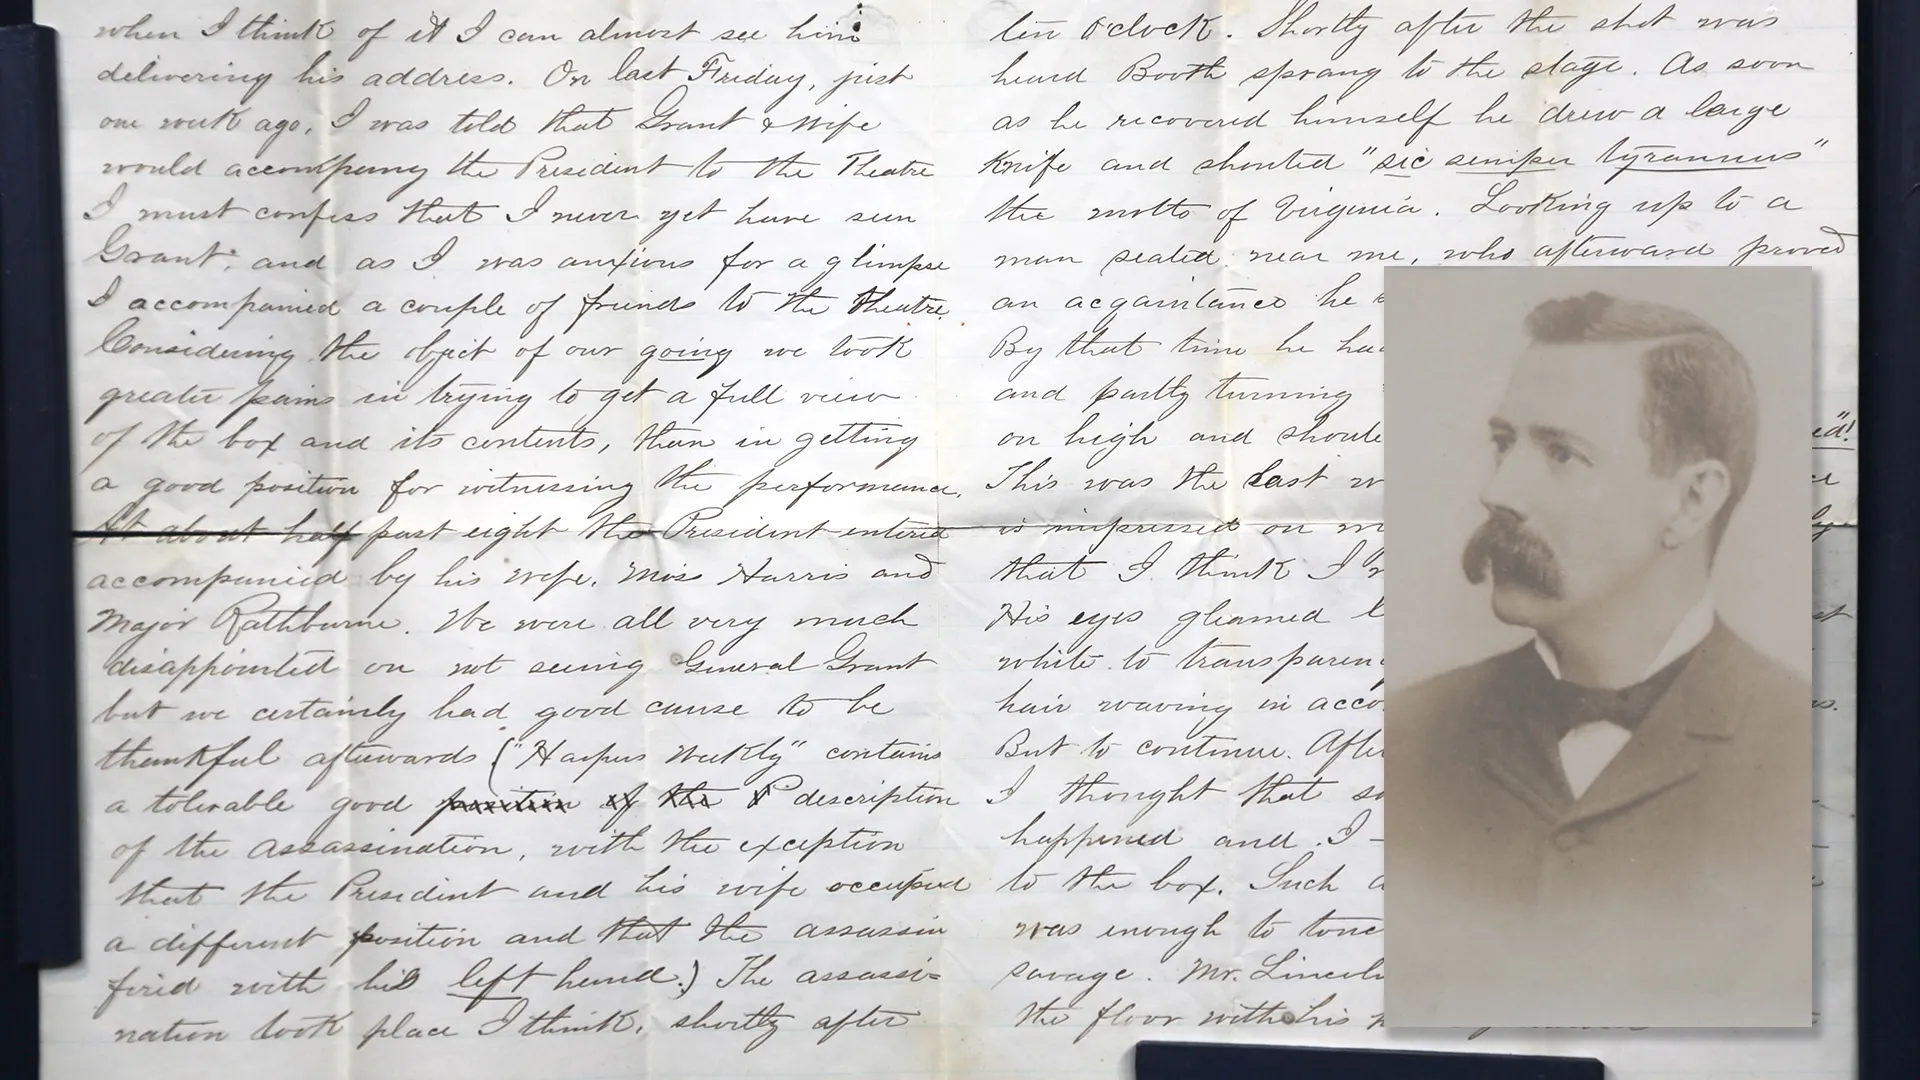 when I think of it I can almost see him
delivering his address. On last Friday, just
one week ago, I was told that Grant & wife
would accompany the President to the Theatre
I must confess that I never yet have seen
Grant, and as I was anxious for a glimpse
I accompanied a couple of friends to the theatre.
Considering the object of our going we took
greater pains in trying to get a full view
of the box and its contents, than in getting
a good position for witnessing the performance.
At about half past eight the President entered
accompanied by his wife, Miss Harris and
Major Rathburne. We were all very much
disappointed on not seeing General Grant
but we certainly had good cause to be
thankful afterwards ("Harpers Weekly" contains
a tolerable good position of the P description
of the assassination, with the exception
that the President and his wife occupied
a different position and that the assassin
fired with his left hand.) The assassi=
nation took place I think, shortly after
ten o'clock. Shortly after the shot was
heard Booth sprang to the stage. As soon
as he recovered himself he drew a large
Knife and shouted "sic semper tyrannus"
the motto of Virginia. Looking up to a
man seated near me, who afterward proved
an acqaintance he
By that time he ha
and partly turning
on high and shoute
ed"!
This was the last w
is impressed on m
that I think I
His eyes gleamed l
white to transparen
hair waving in acco
But to continue. Afte
I thought that so
happened and I
to the box. Such a
was enough to
savage. Mr. Lincoln
the floor with his